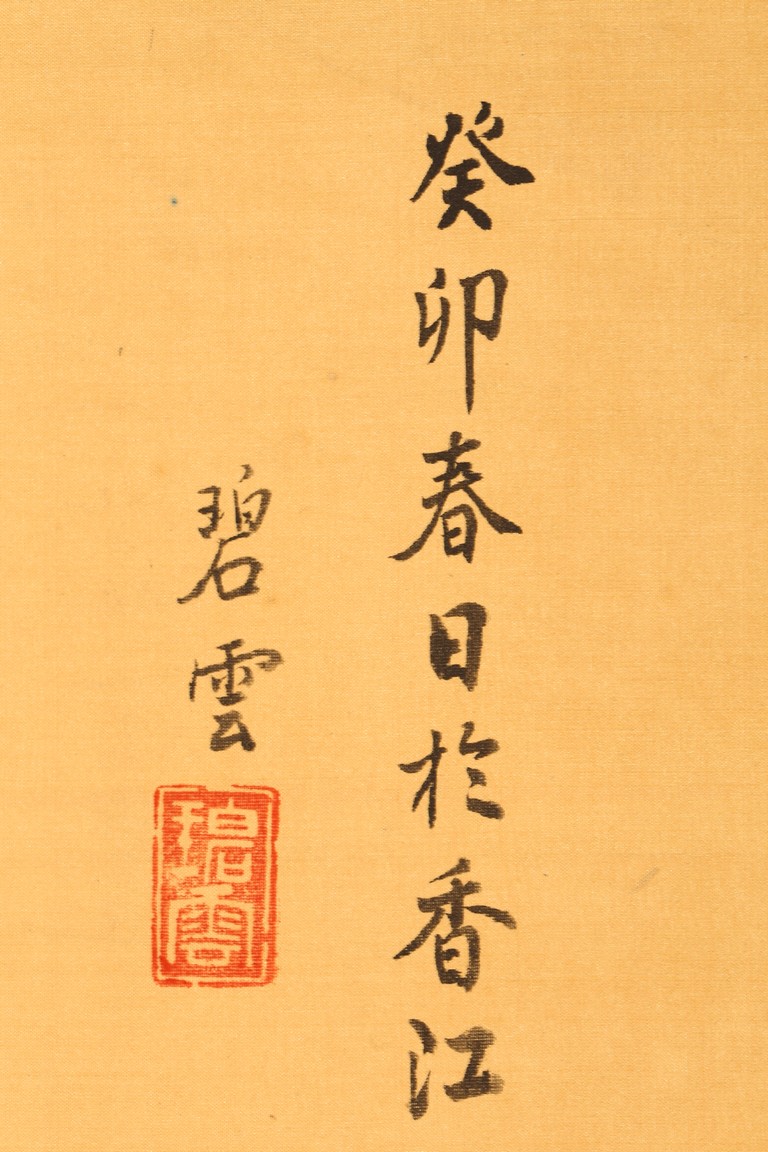 癸卯春日於香江
碧雲
碧雲